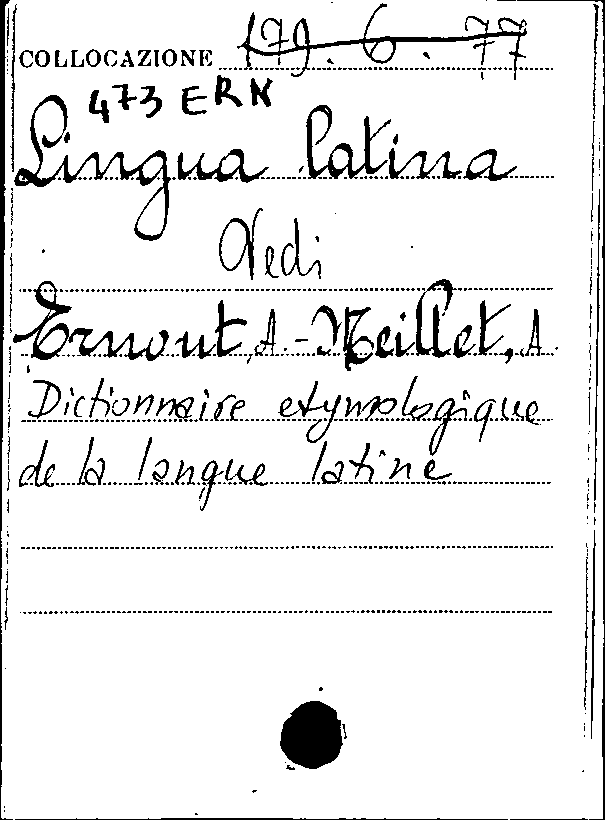 COLLOCAZIONE 179. 6. 77
473 ERN
Lingua latina
Vedi
Ernout, A. - Meillet, A.
Dictionnaire etymologique
de la langue latine